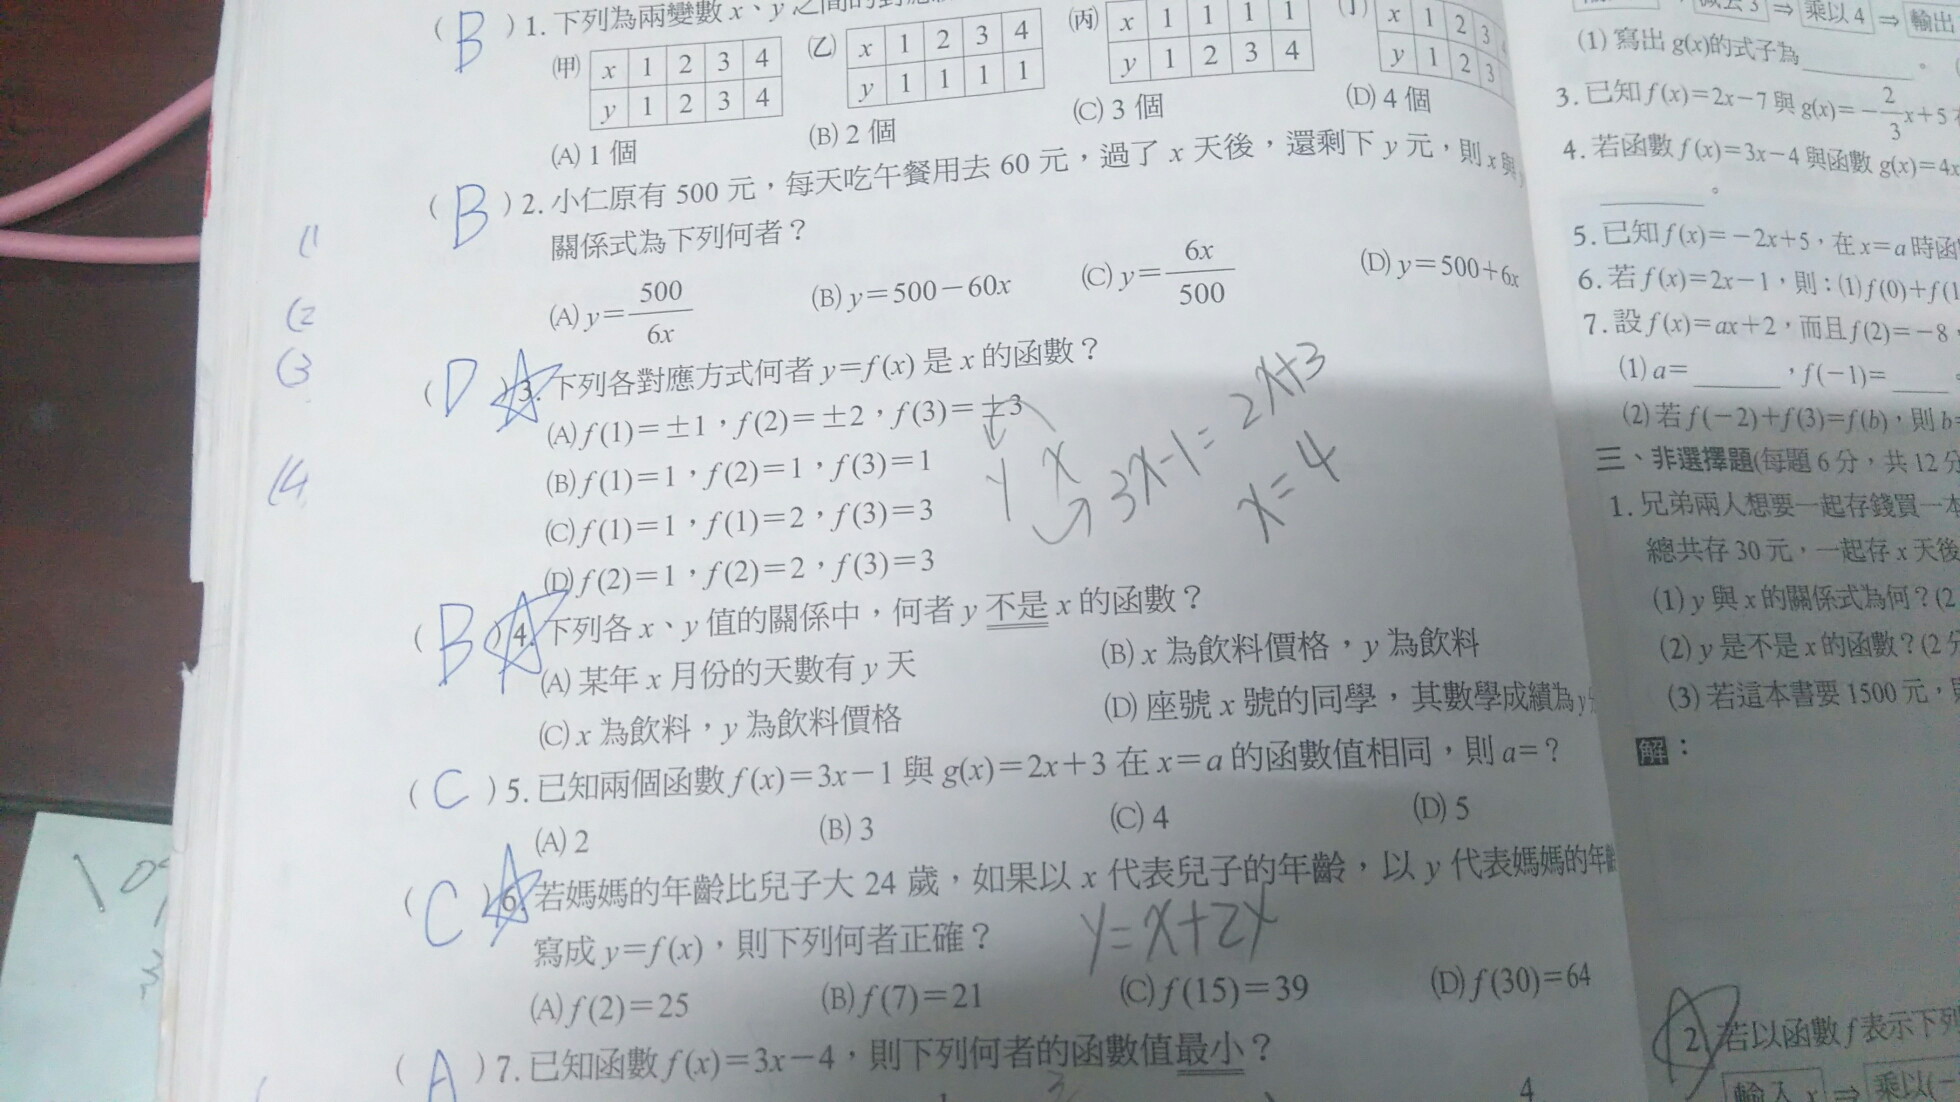 ( B ) 1. 下列為兩變數 x、y
(甲) x 1 2 3 4
y 1 2 3 4
(乙) x 1 2 3 4
y 1 1 1 1
(丙) x 1 1 1 1
y 1 2 3 4
x 1 2 3
y 1 2 3
(A) 1 個 (B) 2 個 (C) 3 個 (D) 4 個
( B ) 2. 小仁原有 500 元，每天吃午餐用去 60 元，過了 x 天後，還剩下 y 元，則 x 與
關係式為下列何者？
(A) y=500/6x (B) y=500-60x (C) y=6x/500 (D) y=500+6x
( D ) 3. 下列各對應方式何者 y=f(x) 是 x 的函數？
(A) f(1)=±1，f(2)=±2，f(3)=±3
(B) f(1)=1，f(2)=1，f(3)=1
(C) f(1)=1，f(1)=2，f(3)=3
(D) f(2)=1，f(2)=2，f(3)=3
y x
3x-1=2x+3
x=4
( B ) 4. 下列各 x、y 值的關係中，何者 y 不是 x 的函數？
(A) 某年 x 月份的天數有 y 天 (B) x 為飲料價格，y 為飲料
(C) x 為飲料，y 為飲料價格 (D) 座號 x 號的同學，其數學成績為 y
( C ) 5. 已知兩個函數 f(x)=3x-1 與 g(x)=2x+3 在 x=a 的函數值相同，則 a=？
(A) 2 (B) 3 (C) 4 (D) 5
( C ) 6. 若媽媽的年齡比兒子大 24 歲，如果以 x 代表兒子的年齡，以 y 代表媽媽的年齡
寫成 y=f(x)，則下列何者正確？
(A) f(2)=25 (B) f(7)=21 (C) f(15)=39 (D) f(30)=64
( A ) 7. 已知函數 f(x)=3x-4，則下列何者的函數值最小？
(1
(2
(3
(4
⇒ 乘以 4 ⇒ 輸出
(1) 寫出 g(x)的式子為 。
3. 已知 f(x)=2x-7 與 g(x)=-2/3x+5
4. 若函數 f(x)=3x-4 與函數 g(x)=4x
。
5. 已知 f(x)=-2x+5，在 x=a 時函
6. 若 f(x)=2x-1，則：(1) f(0)+f(1
7. 設 f(x)=ax+2，而且 f(2)=-8
(1) a= ，f(-1)=
(2) 若 f(-2)+f(3)=f(b)，則 b=
三、非選擇題(每題 6 分，共 12 分
1. 兄弟兩人想要一起存錢買一本
總共存 30 元，一起存 x 天後
(1) y 與 x 的關係式為何？(2
(2) y 是不是 x 的函數？(2 分
(3) 若這本書要 1500 元，
解：
2. 若以函數 f 表示下列
輸入 x ⇒ 乘以(-